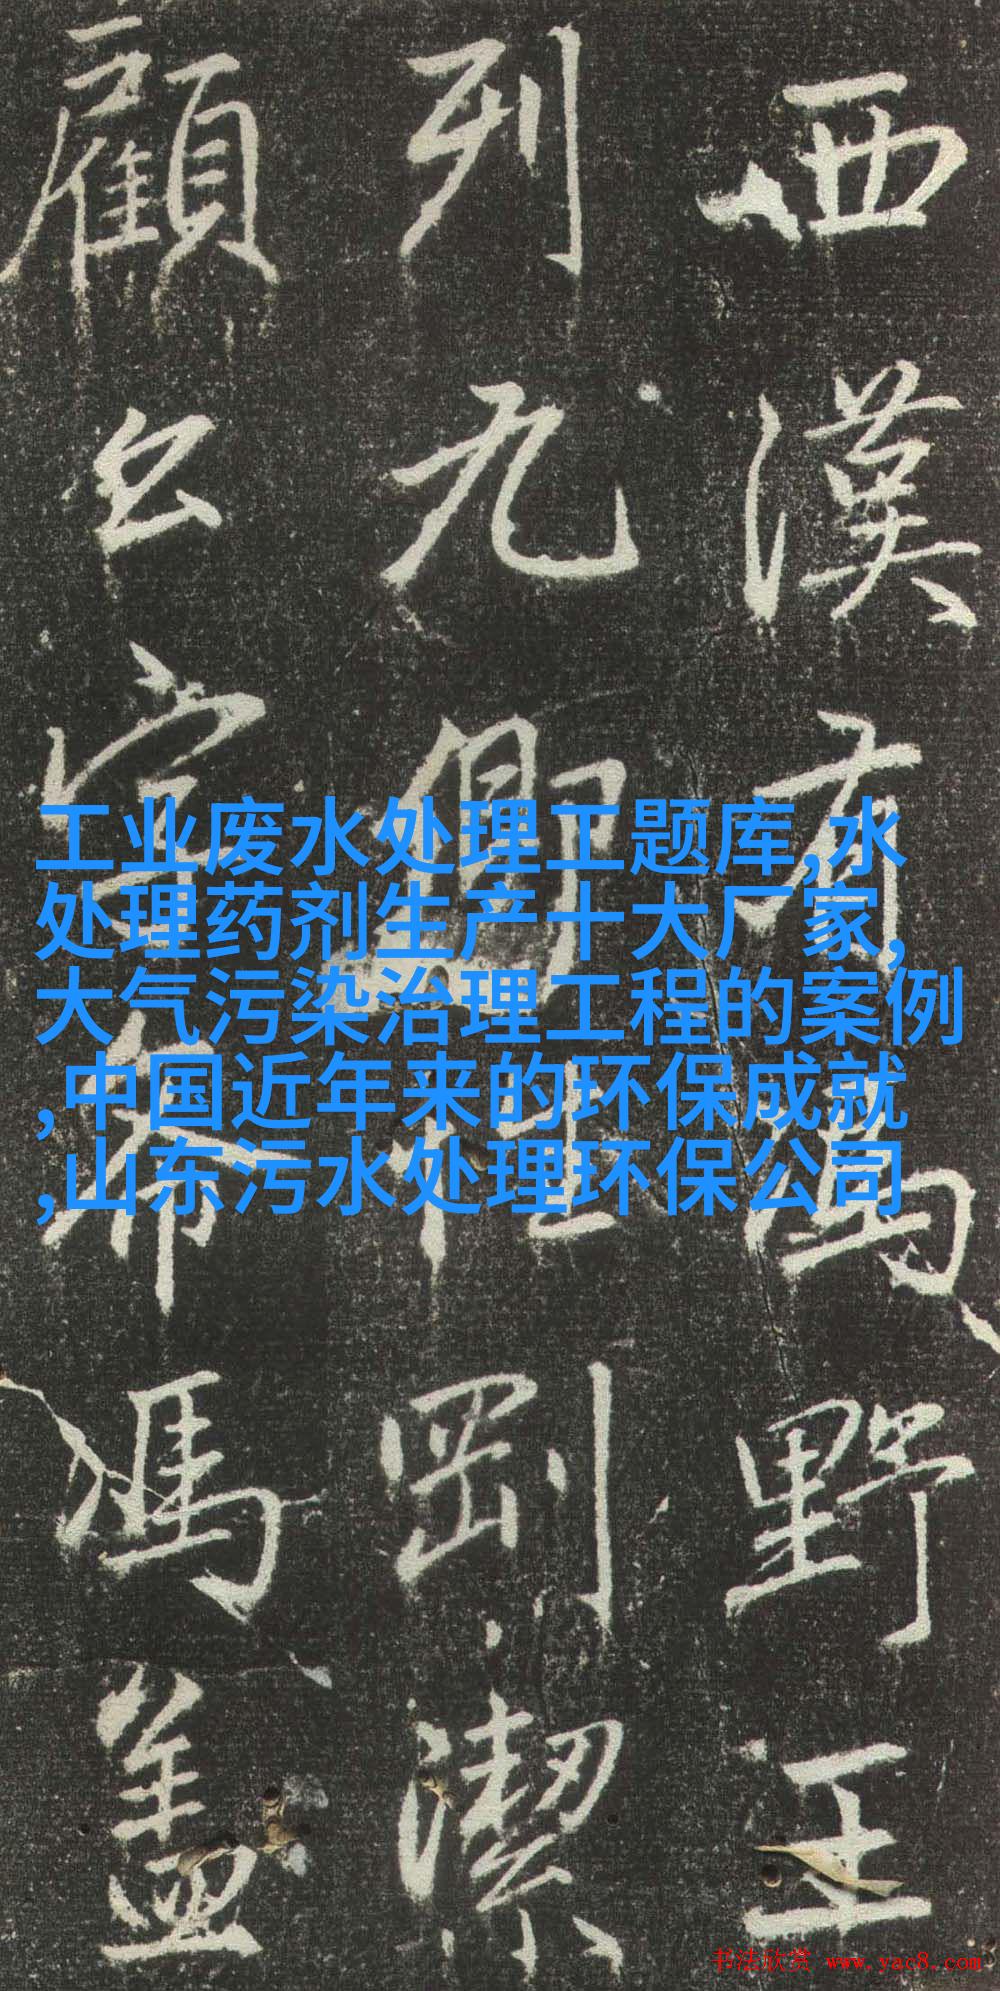 西漢有馮野王
列九卿剛潔
顧馮蓋
工业废水处理工题库,水
处理药剂生产十大厂家,
大气污染治理工程的案例
,中国近年来的环保成就
,山东污水处理环保公司
书法欣赏 www.yac8.com